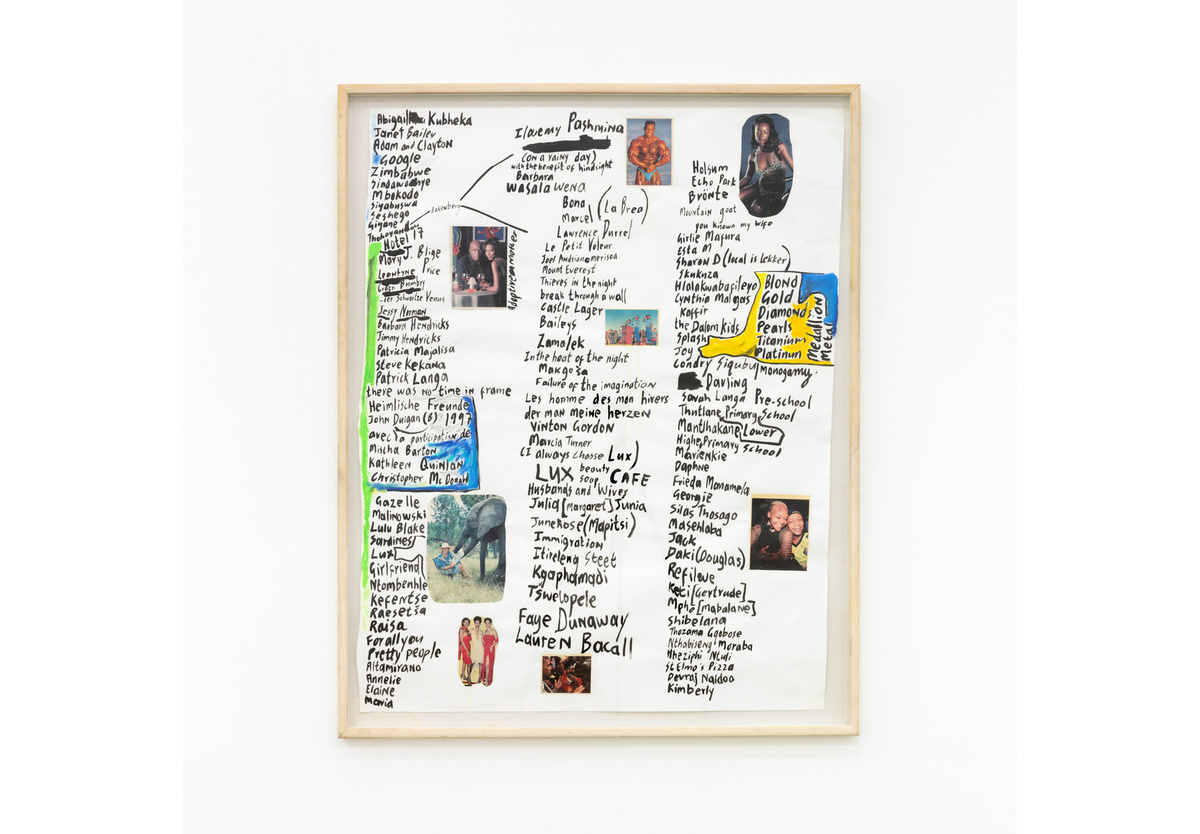 Abigail Kubheka
Janet Bailey
Adam and Clayton
Google
Zimbabwe
Sindawonye
Mbokodo
Siyabuswa
Seshego
Giyane
Thohoyandou
Hotel 17
Mary J. Blige
Leontyne Price
Grace Bumbry
Der Schwartze Venus
Jessy Norman
Barbara Hendricks
Jimmy Hendricks
Patricia Majalisa
Steve Kekana
Patrick Langa
there was no time in frame
Heimlische Freunde
John Duigan (6) 1997
avec la participation de
Mischa Barton
Kathleen Quinlan
Christopher Mc Donald
Gazelle
Malinowski
Lulu Blake
Sardines
Lux
Girlfriend
Ntombenhle
Kefentse
Raesetša
Raisa
For all you
Pretty people
Altamirano
Annelie
Elaine
Maria
I love my Pashmina
(on a rainy day)
with the benefit of hindsight
Barbara
wasala wena
Bona
Marcel (La Brea)
Lawrence Durrel
Le Petit Voleur
Mount Everest
Thieves in the night
break through a wall
Castle Lager
Baileys
Zamalek
In the heat of the night
Makgoša
Failure of the imagination
Les homme des mon hivers
der man meine herzen
Vinton Gordon
Marcia Turner
(I always choose Lux)
LUX beauty soap CAFE
Husbands and Wives
Julia [Margaret] Junia
June Rose (Mapitsi)
Immigration
Itireleng Steet
Kgaphamadi
Tswelopele
Faye Dunaway
Lauren Bacall
Adaptive monster
Holsum
Echo Park
Brönte
Mountain goat
you known my wife
Girlie Mafura
Esta M
Sharon D (local is lekker)
Skukuza
Hlalakwabafileyo
Cynthia Malgas
Kaffir
the Dalom Kids
Splash
Joy
Condry Siqubu
Blond
Gold
Diamonds
Pearls
Titanium
Platinum
Medallion
Metal
Monogamy.
Darling
Sarah Langa Pre-school
Thutlane Primary School
Mantlhakane Lower
Higher Primary School
Marienkie
Daphne
Frieda Manamela
Georgie
Silas Thosago
Masehlaba
Jack
Daki (Douglas)
Refilwe
Keti [Gertrude]
Mpho [Mabalane]
Shibelana
Thozama Gqobose
Nthabiseng Moraba
Nheziphi Ntuli
St Elmo's Pizza
Devraj Naidoo
Kimberly